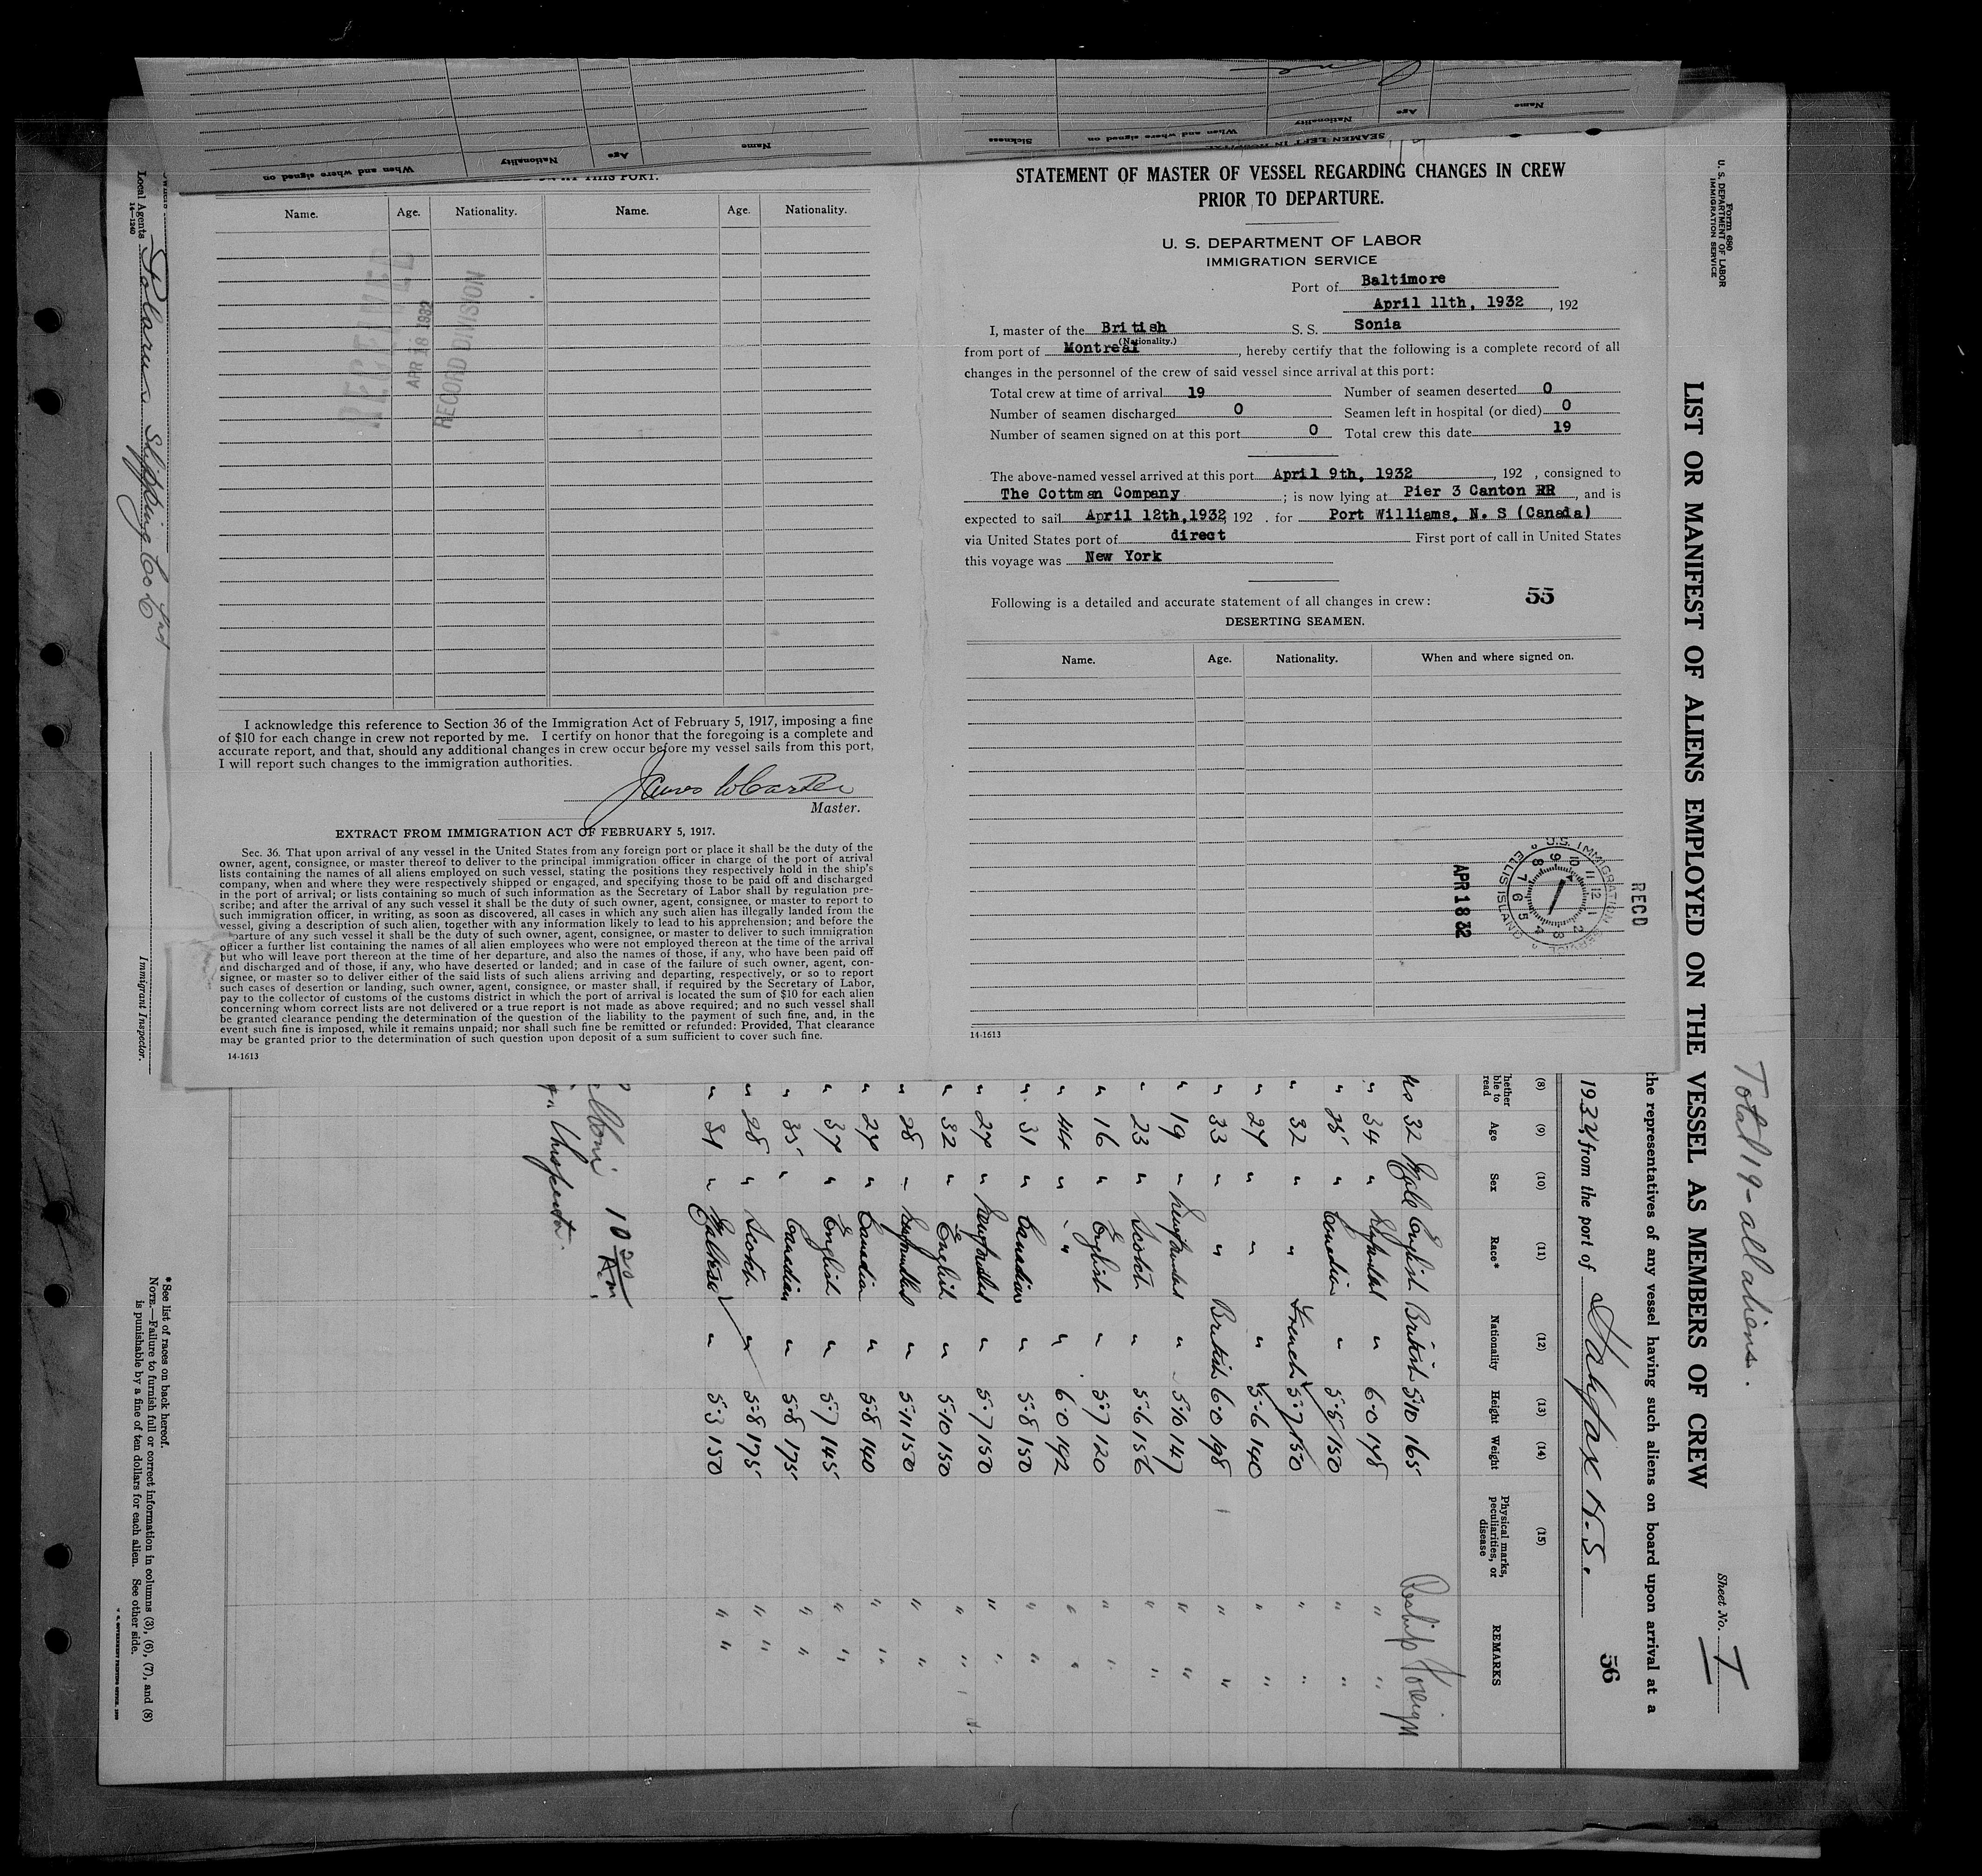 Name
Age
Nationality
When and where signed on
Name
Age
Nationality
When and where signed on
Sickness
SEAMEN LEFT IN HOSPITAL
AT THIS PORT.
Name. Age. Nationality. Name. Age. Nationality.
RECEIVED
APR 18 1932
RECORD DIVISION
I acknowledge this reference to Section 36 of the Immigration Act of February 5, 1917, imposing a fine
of $10 for each change in crew not reported by me. I certify on honor that the foregoing is a complete and
accurate report, and that, should any additional changes in crew occur before my vessel sails from this port,
I will report such changes to the immigration authorities.
James W Carter
Master.
EXTRACT FROM IMMIGRATION ACT OF FEBRUARY 5, 1917.
Sec. 36. That upon arrival of any vessel in the United States from any foreign port or place it shall be the duty of the
owner, agent, consignee, or master thereof to deliver to the principal immigration officer in charge of the port of arrival
lists containing the names of all aliens employed on such vessel, stating the positions they respectively hold in the ship's
company, when and where they were respectively shipped or engaged, and specifying those to be paid off and discharged
in the port of arrival; or lists containing so much of such information as the Secretary of Labor shall by regulation pre-
scribe; and after the arrival of any such vessel it shall be the duty of such owner, agent, consignee, or master to report to
such immigration officer, in writing, as soon as discovered, all cases in which any such alien has illegally landed from the
vessel, giving a description of such alien, together with any information likely to lead to his apprehension; and before the
parture of any such vessel it shall be the duty of such owner, agent, consignee, or master to deliver to such immigration
officer a further list containing the names of all alien employees who were not employed thereon at the time of the arrival
but who will leave port thereon at the time of her departure, and also the names of those, if any, who have been paid off
and discharged and of those, if any, who have deserted or landed; and in case of the failure of such owner, agent, con-
signee, or master so to deliver either of the said lists of such aliens arriving and departing, respectively, or so to report
such cases of desertion or landing, such owner, agent, consignee, or master shall, if required by the Secretary of Labor,
pay to the collector of customs of the customs district in which the port of arrival is located the sum of $10 for each alien
concerning whom correct lists are not delivered or a true report is not made as above required; and no such vessel shall
be granted clearance pending the determination of the question of the liability to the payment of such fine, and, in the
event such fine is imposed, while it remains unpaid; nor shall such fine be remitted or refunded: Provided, That clearance
may be granted prior to the determination of such question upon deposit of a sum sufficient to cover such fine.
14-1613
STATEMENT OF MASTER OF VESSEL REGARDING CHANGES IN CREW
PRIOR TO DEPARTURE.
U. S. DEPARTMENT OF LABOR
IMMIGRATION SERVICE
Port of Baltimore
April 11th, 1932, 192
I, master of the British S. S. Sonia
(Nationality.)
from port of Montreal, hereby certify that the following is a complete record of all
changes in the personnel of the crew of said vessel since arrival at this port:
Total crew at time of arrival 19 Number of seamen deserted 0
Number of seamen discharged 0 Seamen left in hospital (or died) 0
Number of seamen signed on at this port 0 Total crew this date 19
The above-named vessel arrived at this port April 9th, 1932, 192 , consigned to
The Cottman Company; is now lying at Pier 3 Canton RR, and is
expected to sail April 12th,1932, 192 . for Port Williams, N. S (Canada)
via United States port of direct First port of call in United States
this voyage was New York
Following is a detailed and accurate statement of all changes in crew: 55
DESERTING SEAMEN.
Name. Age. Nationality. When and where signed on.
RECD
U.S. IMMIGRATION SERVICE
ELLIS ISLAND
12 1 2 3 4 5 6 7 8 9 10 11
APR 18 32
14-1613
Form 680
U. S. DEPARTMENT OF LABOR
IMMIGRATION SERVICE
Total 19 - all aliens.
Sheet No. 1
LIST OR MANIFEST OF ALIENS EMPLOYED ON THE VESSEL AS MEMBERS OF CREW
the representatives of any vessel having such aliens on board upon arrival at a
1932, from the port of Halifax N.S.
56
(8) (9) (10) (11) (12) (13) (14) (15)
hether ble to read Age Sex Race* Nationality Height Weight Physical marks, peculiarities, or disease REMARKS
32 Male English British 5.10 165 Reship Foreign
" 34 " " 6.0 178 " "
" " Canadian " 150 " "
" 32 " " French 5.7 150 " "
" 27 " " " 5.6 140 " "
" 33 " " British 6.0 198 " "
" 19 " " 5.10 147 " "
" 23 " Scotch " 5.6 156 " "
" 16 " English " 5.7 120 " "
" 44 " " " 6.0 192 " "
" 31 " Canadian " 5.8 150 " "
" 27 " " 5.7 150 " "
" 32 " English " 5.10 150 " "
" 28 " " 5.11 150 " "
" 27 " Canadian " 5.8 140 " "
" 37 " English " 5.7 145 " "
" 35 " Canadian " 5.8 175 " "
" 28 " Scotch " 5.8 175 " "
" 31 " Maltese " 5.3 150 " "
10 30 Am
Inspector.
*See list of races on back hereof.
NOTE.—Failure to furnish full or correct information in columns (3), (6), (7), and (8)
is punishable by a fine of ten dollars for each alien. See other side.
Local Agents Polarus Shipping Co Ltd
14-1240
Immigrant Inspector.